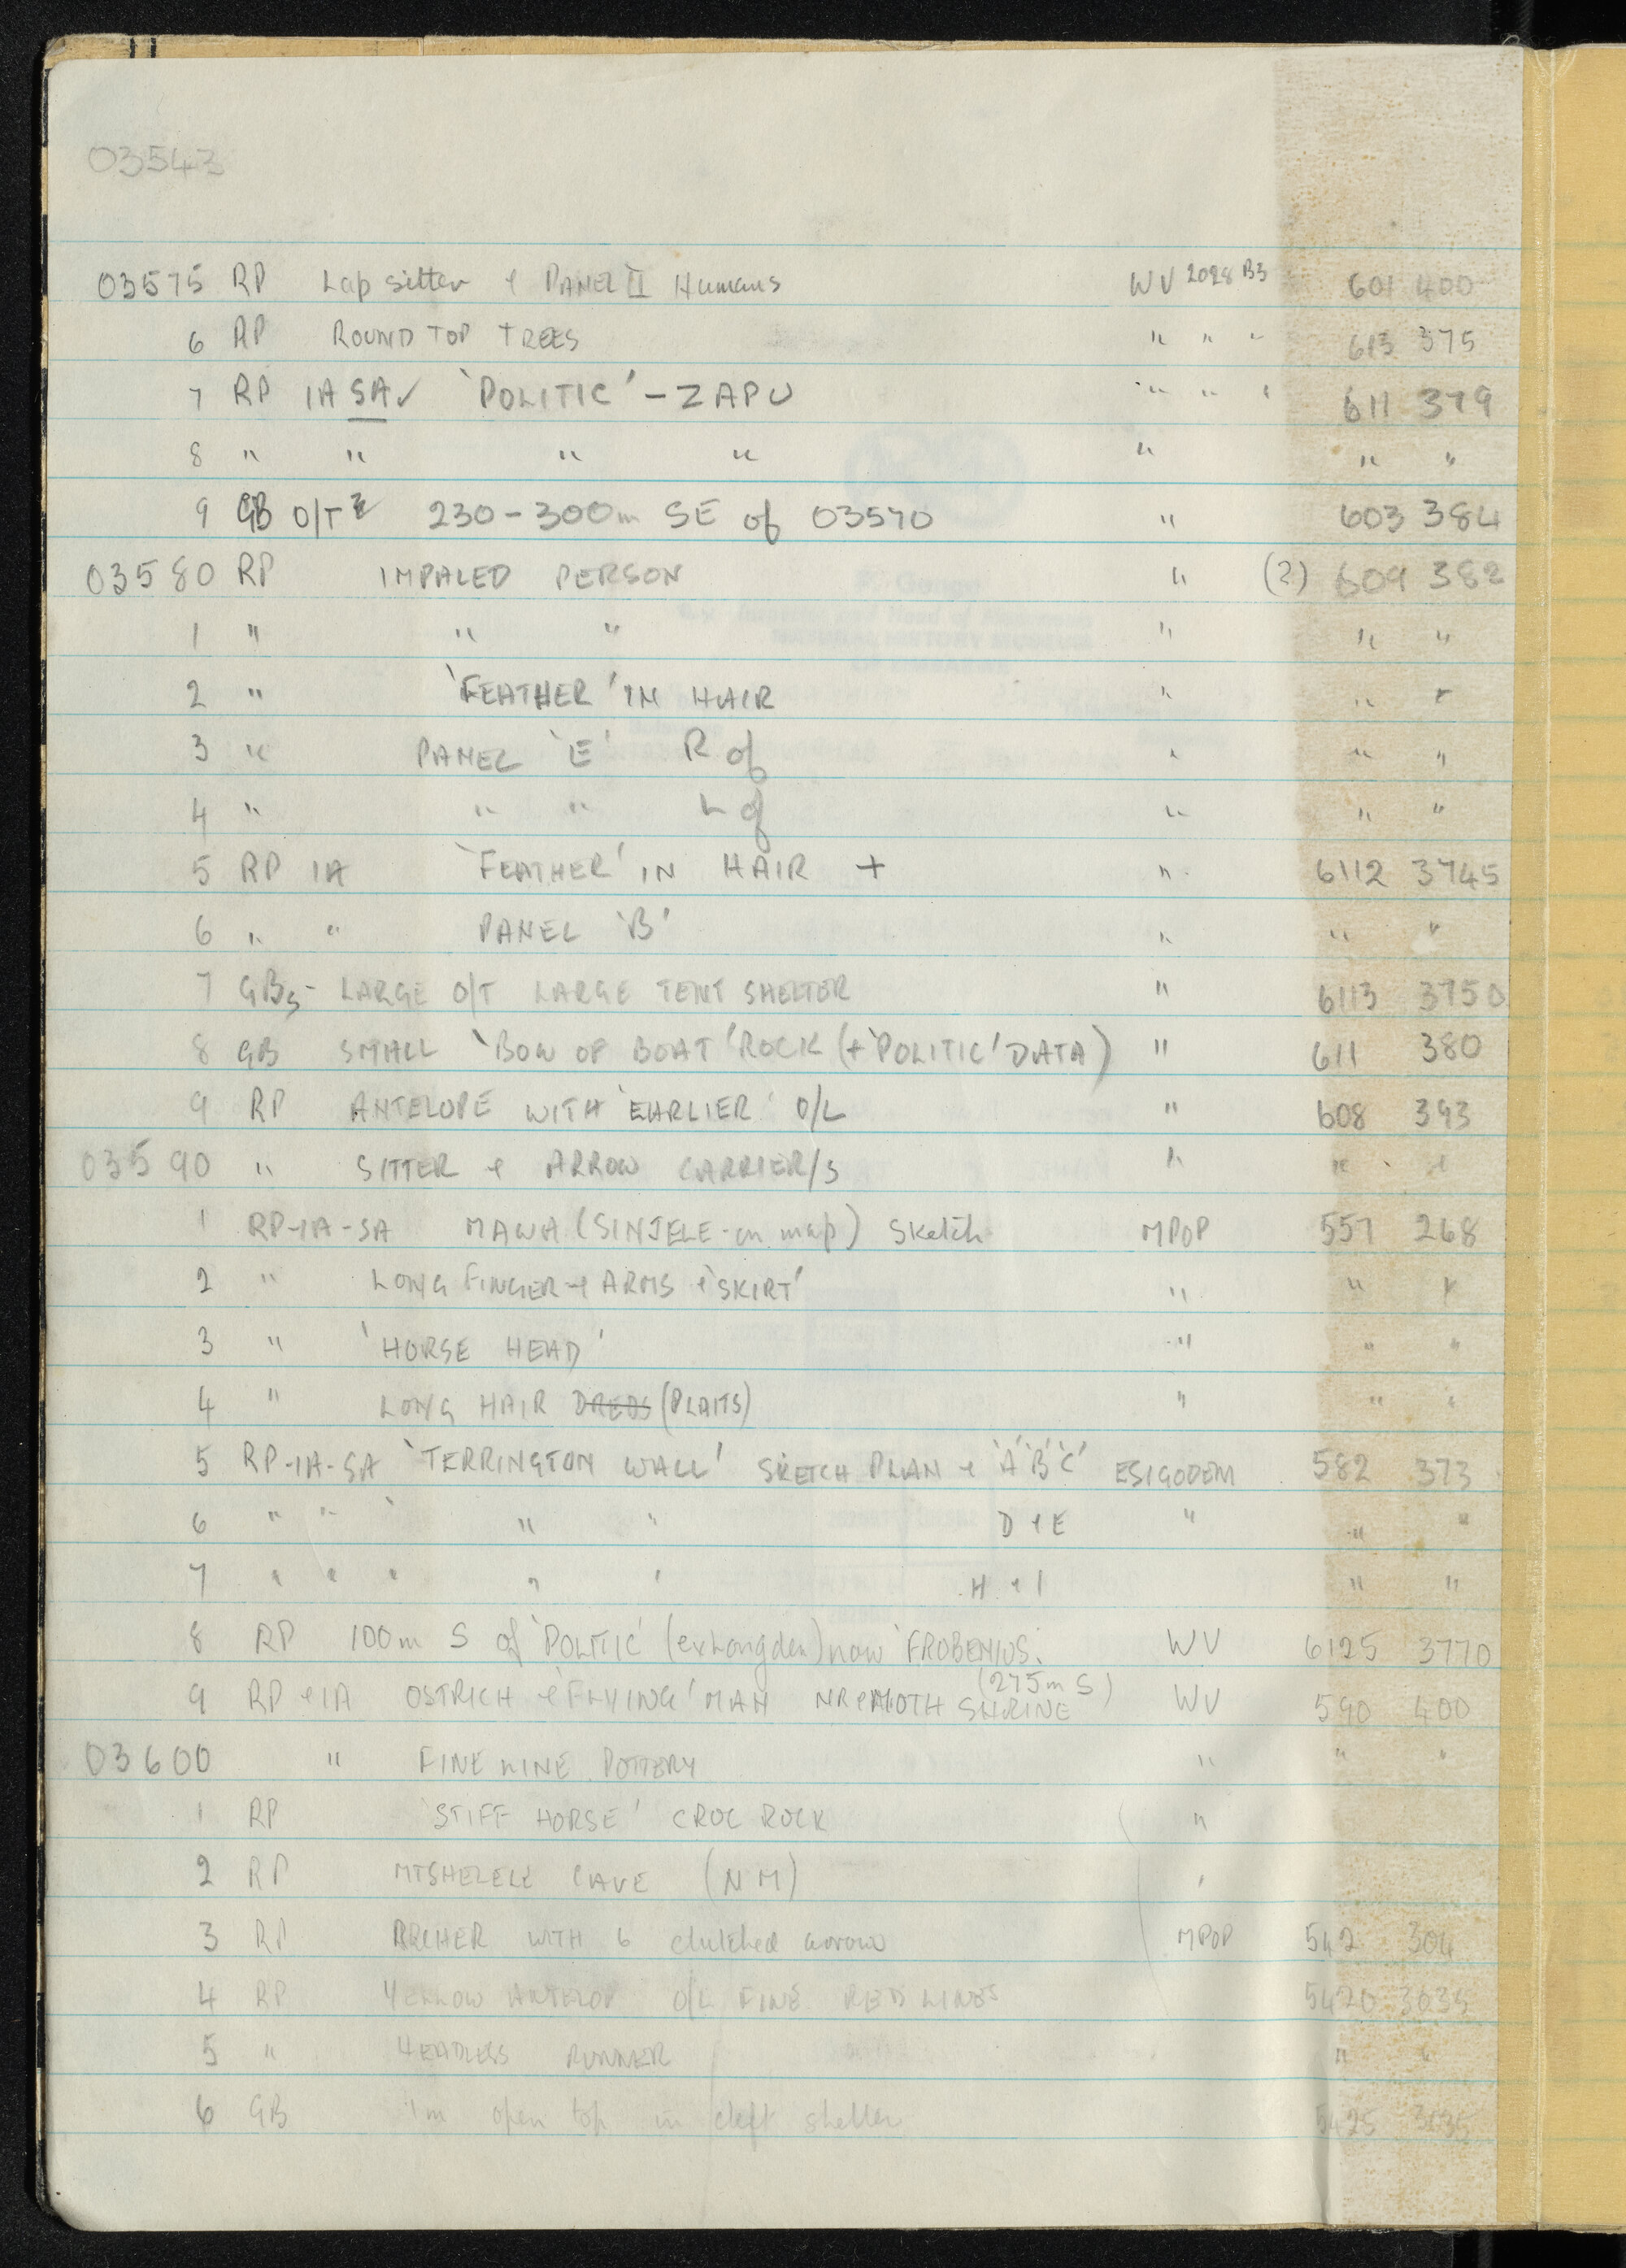 03543
03575 RP Lap sitter & PANEL II Humans WV 2028 B3 601 400
6 RP ROUND TOP TREES " " " 613 375
7 RP IA SA✓ 'POLITIC' - ZAPU " " " 611 379
8 " " " " " " "
9 GB O/T 230-300m SE of 03570 " 603 384
03580 RP IMPALED PERSON " (2) 609 382
1 " " " " " "
2 " 'FEATHER' IN HAIR " " "
3 " PANEL 'E' R of " " "
4 " " " L of " " "
5 RP IA 'FEATHER' IN HAIR + " 6112 3745
6 " " PANEL 'B' " " "
7 GBs - LARGE O/T LARGE TENT SHELTER " 6113 3750
8 GB SMALL 'BOW OF BOAT' ROCK (+ 'POLITIC' DATA) " 611 380
9 RP ANTELOPE WITH 'EARLIER' O/L " 608 393
03590 " SITTER & ARROW CARRIER/S " " "
1 RP-IA-SA MAWA (SINJELE - on map) Sketch MPOP 557 268
2 " LONG FINGER & ARMS & 'SKIRT' " " "
3 " 'HORSE HEAD' " " "
4 " LONG HAIR DREDS (PLAITS) " " "
5 RP-IA-SA 'TERRINGTON WALL' SKETCH PLAN & 'A' 'B' 'C' ESIGODEM 582 373
6 " " " " " D & E " " "
7 " " " " " H & I " "
8 RP 100m S of 'POLITIC' (ex Longden) now 'FROBENIUS' WV 6125 3770
9 RP & IA OSTRICH & 'FLYING' MAN NR MOTH SHRINE (275m S) WV 590 400
03600 " FINE LINE POTTERY " " "
1 RP 'STIFF HORSE' CROC ROCK "
2 RP MTSHELELE CAVE (NM) "
3 RP ARCHER WITH 6 clutched arrows MPOP 542 304
4 RP YELLOW ANTELOP O/L FINE RED LINES 5420 3035
5 " HEADLESS RUNNER " "
6 GB 1m open top in cleft shelter 5425